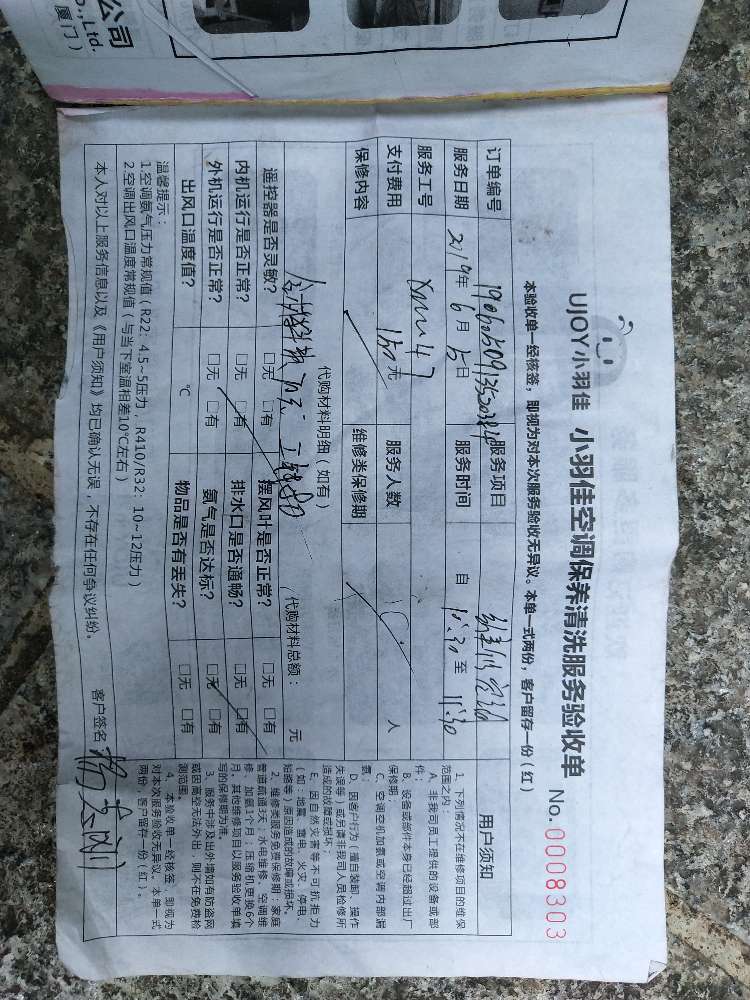 公司
o., Ltd.
厦门）
UJOY小羽佳 小羽佳空调保养清洗服务验收单
No. 0008303
本验收单一经核签，即视为对本次服务验收无异议。本单一式两份，客户留存一份（红）
订单编号 服务项目
服务日期 2019年6月5日 服务时间 自 10:30至 11:30
服务工号 Xmm47
支付费用 150元 服务人数 人
保修内容 维修类保修期
代购材料明细（如有） 代购材料总额： 元
遥控器是否灵敏？ □无 □有 摆风叶是否正常？ □无 □有
内机运行是否正常？ □无 □有 排水口是否通畅？ □无 □有
外机运行是否正常？ □无 □有 氨气是否达标？ □无 □有
出风口温度值？ ℃ 物品是否有丢失？ □无 □有
温馨提示：
1.空调氨气压力常规值（R22：4.5~5压力，R410/R32：10~12压力）
2.空调出风口温度常规值（与当下室温相差10℃左右）
本人对以上服务信息以及《用户须知》均已确认无误，不存在任何争议纠纷。 客户签名
用户须知
1、下列情况不在维修项目的维保
范围之内：
A、非我司员工提供的设备或部
件；
B、设备或部件本身已经超过出厂
保修期；
C、空调空机加氨或空调内部漏
氨；
D、因客户行为（擅自装卸、操作
失误等）或另请非我司人员检修所
造成的故障或损坏；
E、因自然灾害等不可抗拒力
（如：地震、雷电、火灾、停电、
短路等）原因造成的故障或损坏。
2、维修类服务免费保修期：家庭
管道疏通3天；水电维修、空调维
修、加氨1个月；压缩机更换6个
月；其他维修项目以服务验收单填
写的保修期为准。
3、服务中涉及出外墙如有防盗网
或因高空无法外出，则不在免费检
测范围。
4、本验收单一经核签，即视为
对本次服务验收无异议。本单一式
两份，客户留存一份（红）。